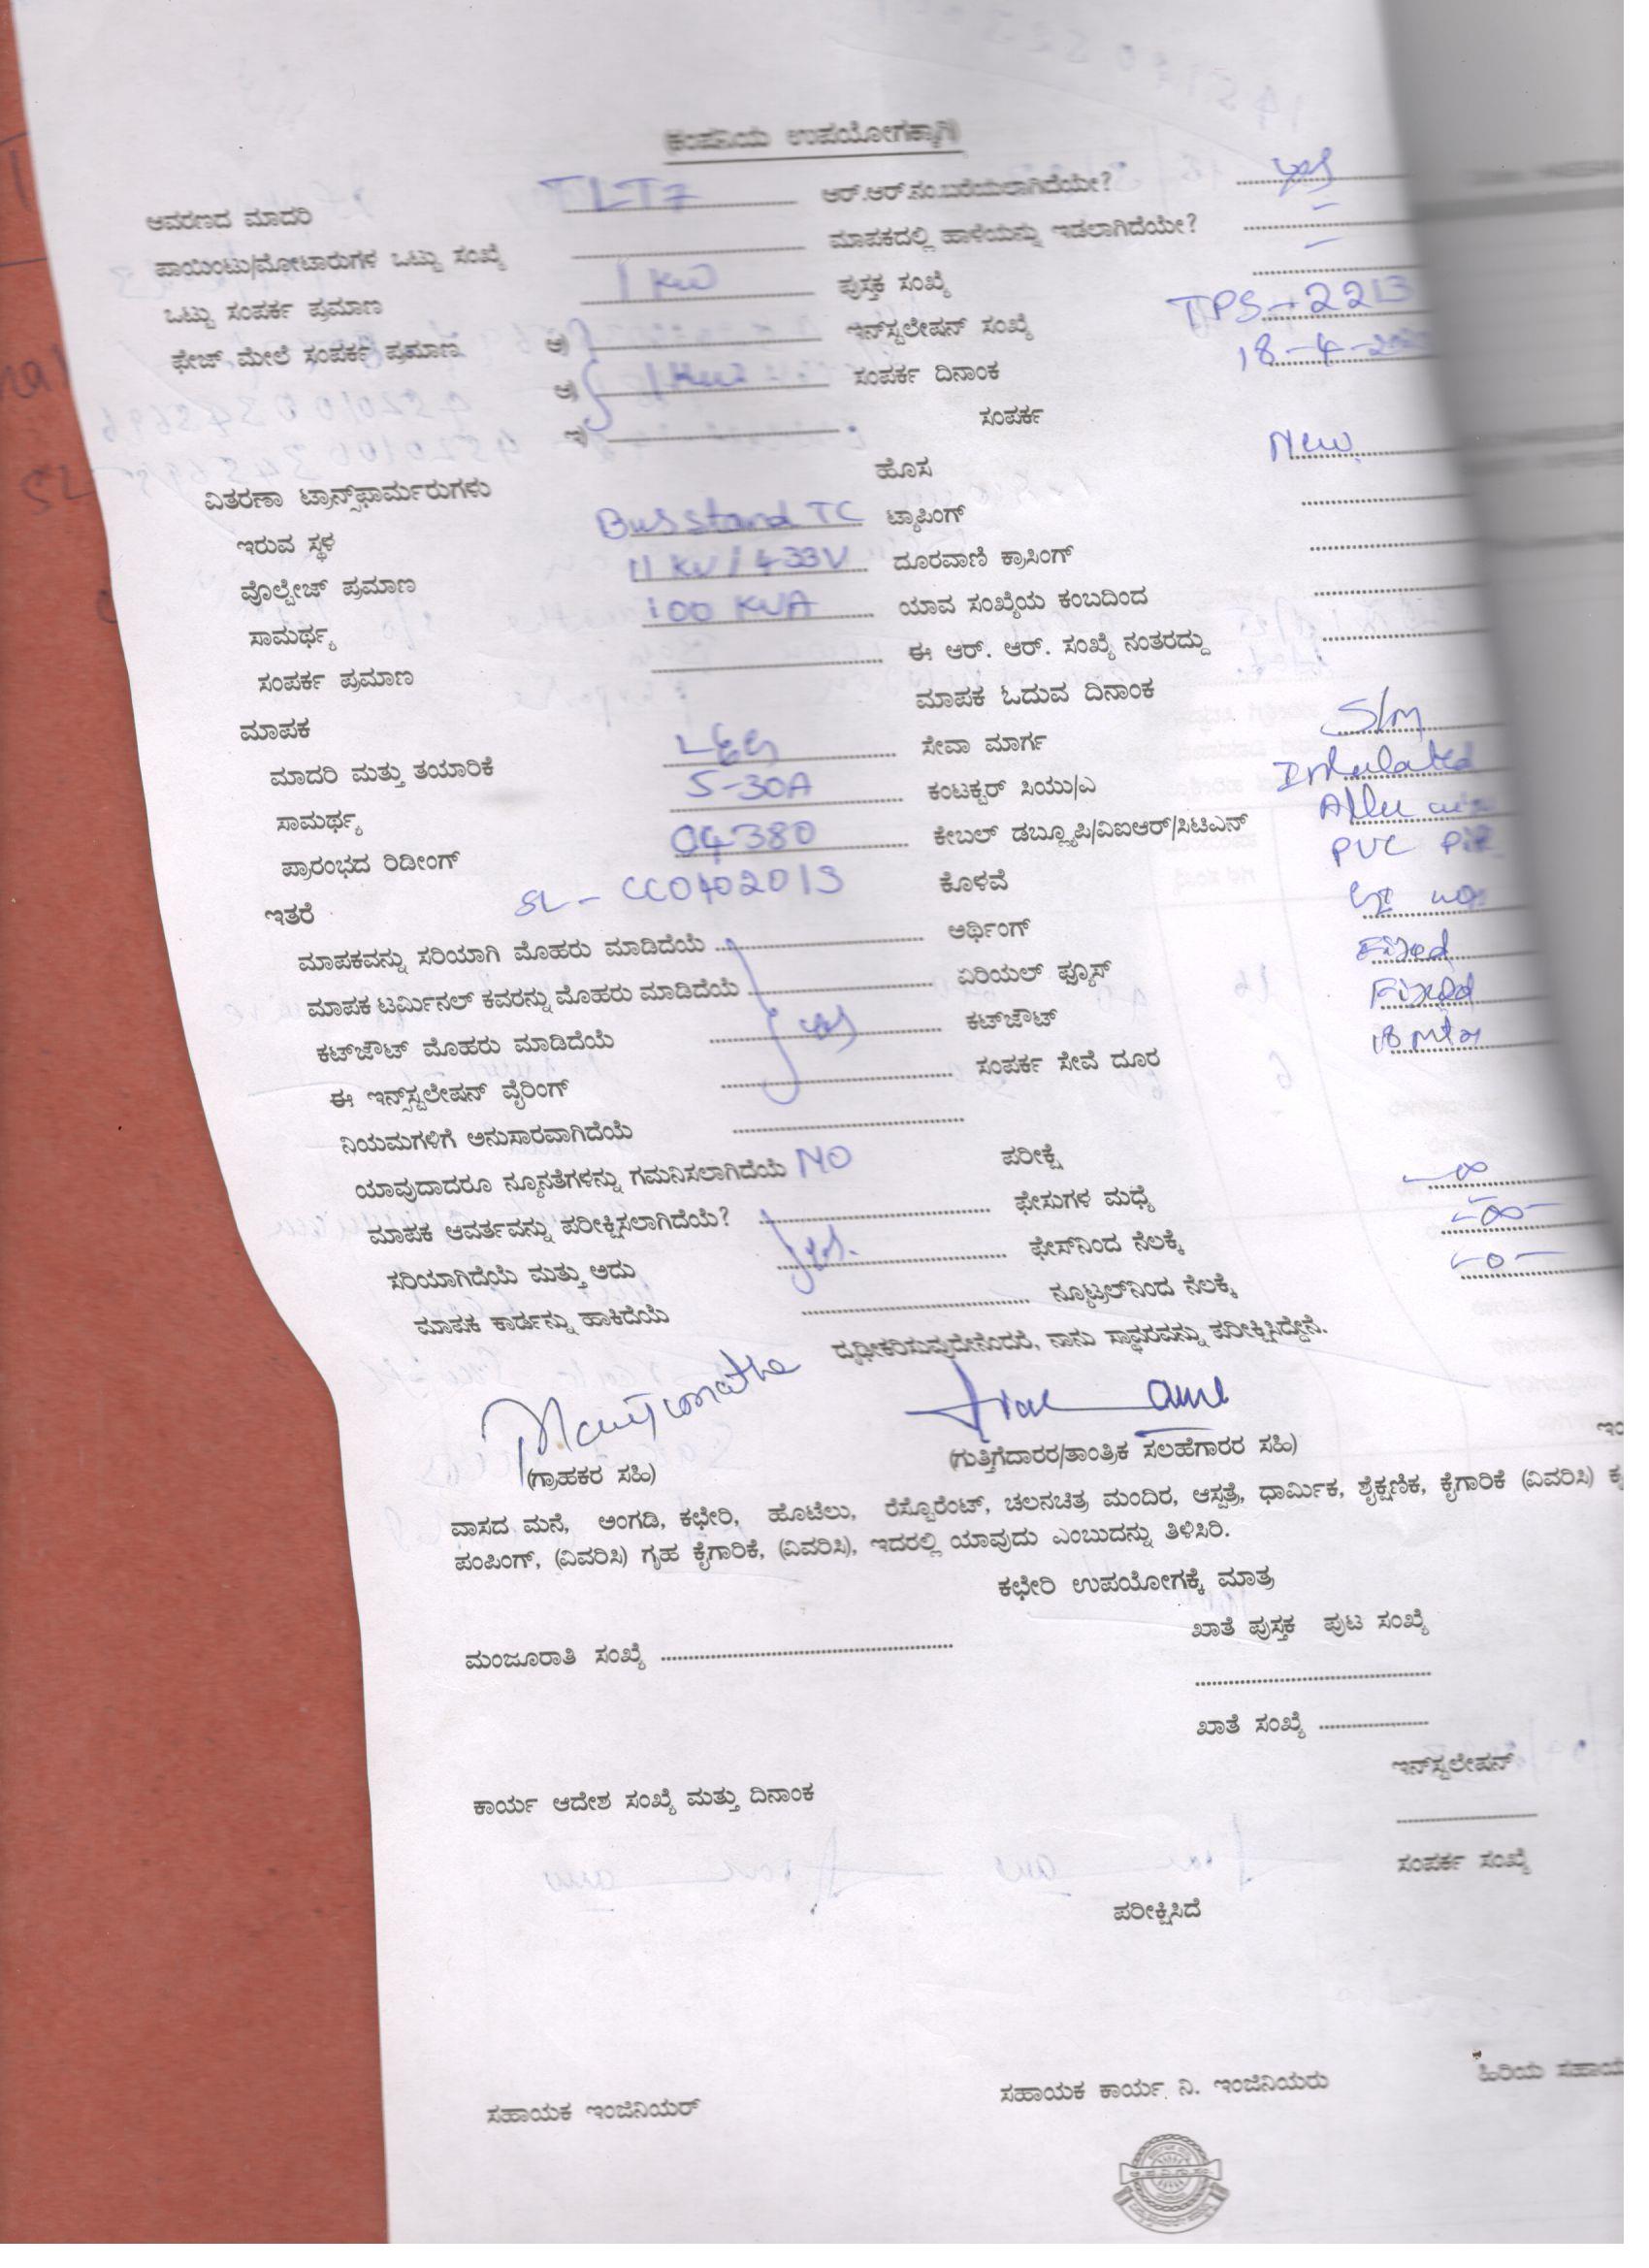 (ಕಂಪನಿಯ ಉಪಯೋಗಕ್ಕಾಗಿ)
ಆವರಣದ ಮಾದರಿ TLT7 ಆರ್.ಆರ್.ನಂ.ಬರೆಯಲಾಗಿದೆಯೇ? yes
ಪಾಯಿಂಟು/ಮೋಟಾರುಗಳ ಒಟ್ಟು ಸಂಖ್ಯೆ ಮಾಪಕದಲ್ಲಿ ಹಾಳೆಯನ್ನು ಇಡಲಾಗಿದೆಯೇ? –
ಒಟ್ಟು ಸಂಪರ್ಕ ಪ್ರಮಾಣ 1 KW ಪುಸ್ತಕ ಸಂಖ್ಯೆ –
ಫೇಜ್ ಮೇಲೆ ಸಂಪರ್ಕ ಪ್ರಮಾಣ ಅ) ಇನ್‌ಸ್ಟಲೇಷನ್ ಸಂಖ್ಯೆ TPS-2213
ಆ) 1 KW ಸಂಪರ್ಕ ದಿನಾಂಕ 18-4-
ಇ) ಸಂಪರ್ಕ
ವಿತರಣಾ ಟ್ರಾನ್ಸ್‌ಫಾರ್ಮರುಗಳು ಹೊಸ New
ಇರುವ ಸ್ಥಳ Bus stand TC ಟ್ಯಾಪಿಂಗ್
ವೊಲ್ಟೇಜ್ ಪ್ರಮಾಣ 11 KV / 433V ದೂರವಾಣಿ ಕ್ರಾಸಿಂಗ್
ಸಾಮರ್ಥ್ಯ 100 KVA ಯಾವ ಸಂಖ್ಯೆಯ ಕಂಬದಿಂದ
ಸಂಪರ್ಕ ಪ್ರಮಾಣ ಈ ಆರ್. ಆರ್. ಸಂಖ್ಯೆ ನಂತರದ್ದು
ಮಾಪಕ ಮಾಪಕ ಓದುವ ದಿನಾಂಕ
ಮಾದರಿ ಮತ್ತು ತಯಾರಿಕೆ L&G ಸೇವಾ ಮಾರ್ಗ S/m
ಸಾಮರ್ಥ್ಯ 5-30A ಕಂಟಕ್ಟರ್ ಸಿಯು/ಎ Insulated
ಪ್ರಾರಂಭದ ರಿಡೀಂಗ್ 04380 ಕೇಬಲ್ ಡಬ್ಲ್ಯೂಪಿ/ವಿಐಆರ್/ಸಿಟಿಎನ್
ಇತರೆ SL - CC0402013 ಕೊಳವೆ PVC
ಮಾಪಕವನ್ನು ಸರಿಯಾಗಿ ಮೊಹರು ಮಾಡಿದೆಯೆ ಅರ್ಥಿಂಗ್
ಮಾಪಕ ಟರ್ಮಿನಲ್ ಕವರನ್ನು ಮೊಹರು ಮಾಡಿದೆಯೆ ಏರಿಯಲ್ ಫ್ಯೂಸ್ Fixed
ಕಟ್‌ಜೌಟ್ ಮೊಹರು ಮಾಡಿದೆಯೆ yes ಕಟ್‌ಜೌಟ್ Fixed
ಈ ಇನ್ಸ್‌ಸ್ಟಲೇಷನ್ ವೈರಿಂಗ್ ಸಂಪರ್ಕ ಸೇವೆ ದೂರ
ನಿಯಮಗಳಿಗೆ ಅನುಸಾರವಾಗಿದೆಯೆ
ಯಾವುದಾದರೂ ನ್ಯೂನತೆಗಳನ್ನು ಗಮನಿಸಲಾಗಿದೆಯೆ NO ಪರೀಕ್ಷೆ
ಮಾಪಕ ಆವರ್ತವನ್ನು ಪರೀಕ್ಷಿಸಲಾಗಿದೆಯೆ? ಫೇಸುಗಳ ಮಧ್ಯೆ –∞
ಸರಿಯಾಗಿದೆಯೆ ಮತ್ತು ಅದು yes. ಫೇಸ್‌ನಿಂದ ನೆಲಕ್ಕೆ –∞–
ಮಾಪಕ ಕಾರ್ಡನ್ನು ಹಾಕಿದೆಯೆ ನ್ಯೂಟ್ರಲ್‌ನಿಂದ ನೆಲಕ್ಕೆ –0–
ದೃಢೀಕರಿಸುವುದೇನೆಂದರೆ, ನಾನು ಸ್ಥಾವರವನ್ನು ಪರೀಕ್ಷಿಸಿದ್ದೇನೆ.
Manjunatha
(ಗ್ರಾಹಕರ ಸಹಿ) (ಗುತ್ತಿಗೆದಾರರ/ತಾಂತ್ರಿಕ ಸಲಹೆಗಾರರ ಸಹಿ)
ವಾಸದ ಮನೆ, ಅಂಗಡಿ, ಕಛೇರಿ, ಹೊಟೆಲು, ರೆಸ್ಟೊರೆಂಟ್, ಚಲನಚಿತ್ರ ಮಂದಿರ, ಆಸ್ಪತ್ರೆ, ಧಾರ್ಮಿಕ, ಶೈಕ್ಷಣಿಕ, ಕೈಗಾರಿಕೆ (ವಿವರಿಸಿ)
ಪಂಪಿಂಗ್, (ವಿವರಿಸಿ) ಗೃಹ ಕೈಗಾರಿಕೆ, (ವಿವರಿಸಿ), ಇದರಲ್ಲಿ ಯಾವುದು ಎಂಬುದನ್ನು ತಿಳಿಸಿರಿ.
ಕಛೇರಿ ಉಪಯೋಗಕ್ಕೆ ಮಾತ್ರ
ಮಂಜೂರಾತಿ ಸಂಖ್ಯೆ ಖಾತೆ ಪುಸ್ತಕ ಪುಟ ಸಂಖ್ಯೆ
ಖಾತೆ ಸಂಖ್ಯೆ
ಇನ್‌ಸ್ಟಲೇಷನ್
ಕಾರ್ಯ ಆದೇಶ ಸಂಖ್ಯೆ ಮತ್ತು ದಿನಾಂಕ
ಸಂಪರ್ಕ ಸಂಖ್ಯೆ
ಪರೀಕ್ಷಿಸಿದೆ
ಸಹಾಯಕ ಇಂಜಿನಿಯರ್ ಸಹಾಯಕ ಕಾರ್ಯ ನಿ. ಇಂಜಿನಿಯರು ಹಿರಿಯ